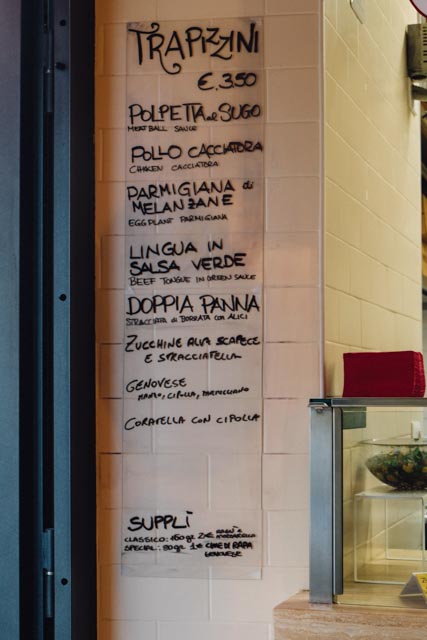 TRAPIZZINI
€.3.50
POLPETTA al SUGO
MEATBALL SAUCE
POLLO CACCIATORA
CHIKEN CACCIATORA
PARMIGIANA di
MELANZANE
EGGPLANT PARMIGIANA
LINGUA IN
SALSA VERDE
BEEF TONGUE IN GREEN SAUCE
DOPPIA PANNA
STRACCIATA di BURRATA con ALICI
ZUCCHINE ALLA SCAPECE
E STRACCIATELLA
GENOVESE
MANZO, CIPOLLA, PARMIGIANO
CORATELLA CON CIPOLLA
SUPPLÌ
CLASSICO: 160gr 2€ RAGÙ E MOZZARELLA
SPECIAL: 80gr 1€ CIME DI RAPA
GENOVESE